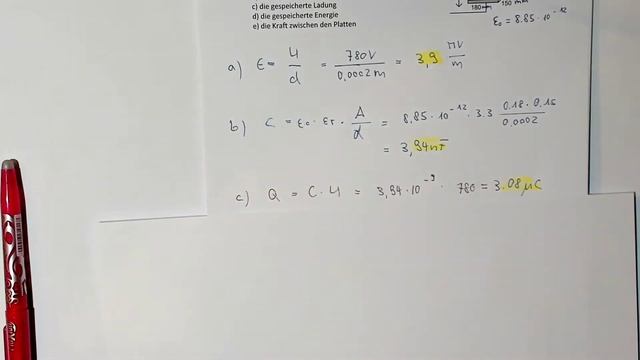 c) die gespeicherte Ladung
d) die gespeicherte Energie
e) die Kraft zwischen den Platten
180 mm
150 mm
ε₀ = 8.85 · 10⁻¹²
a) E = U/d = 780V/0.0002m = 3,9 MV/m
b) C = ε₀ · εr · A/d = 8.85 · 10⁻¹² · 3.3 0.18 · 0.15/0.0002
= 3,94nF
c) Q = C · U = 3,94 · 10⁻⁹ · 780 = 3.08 µC